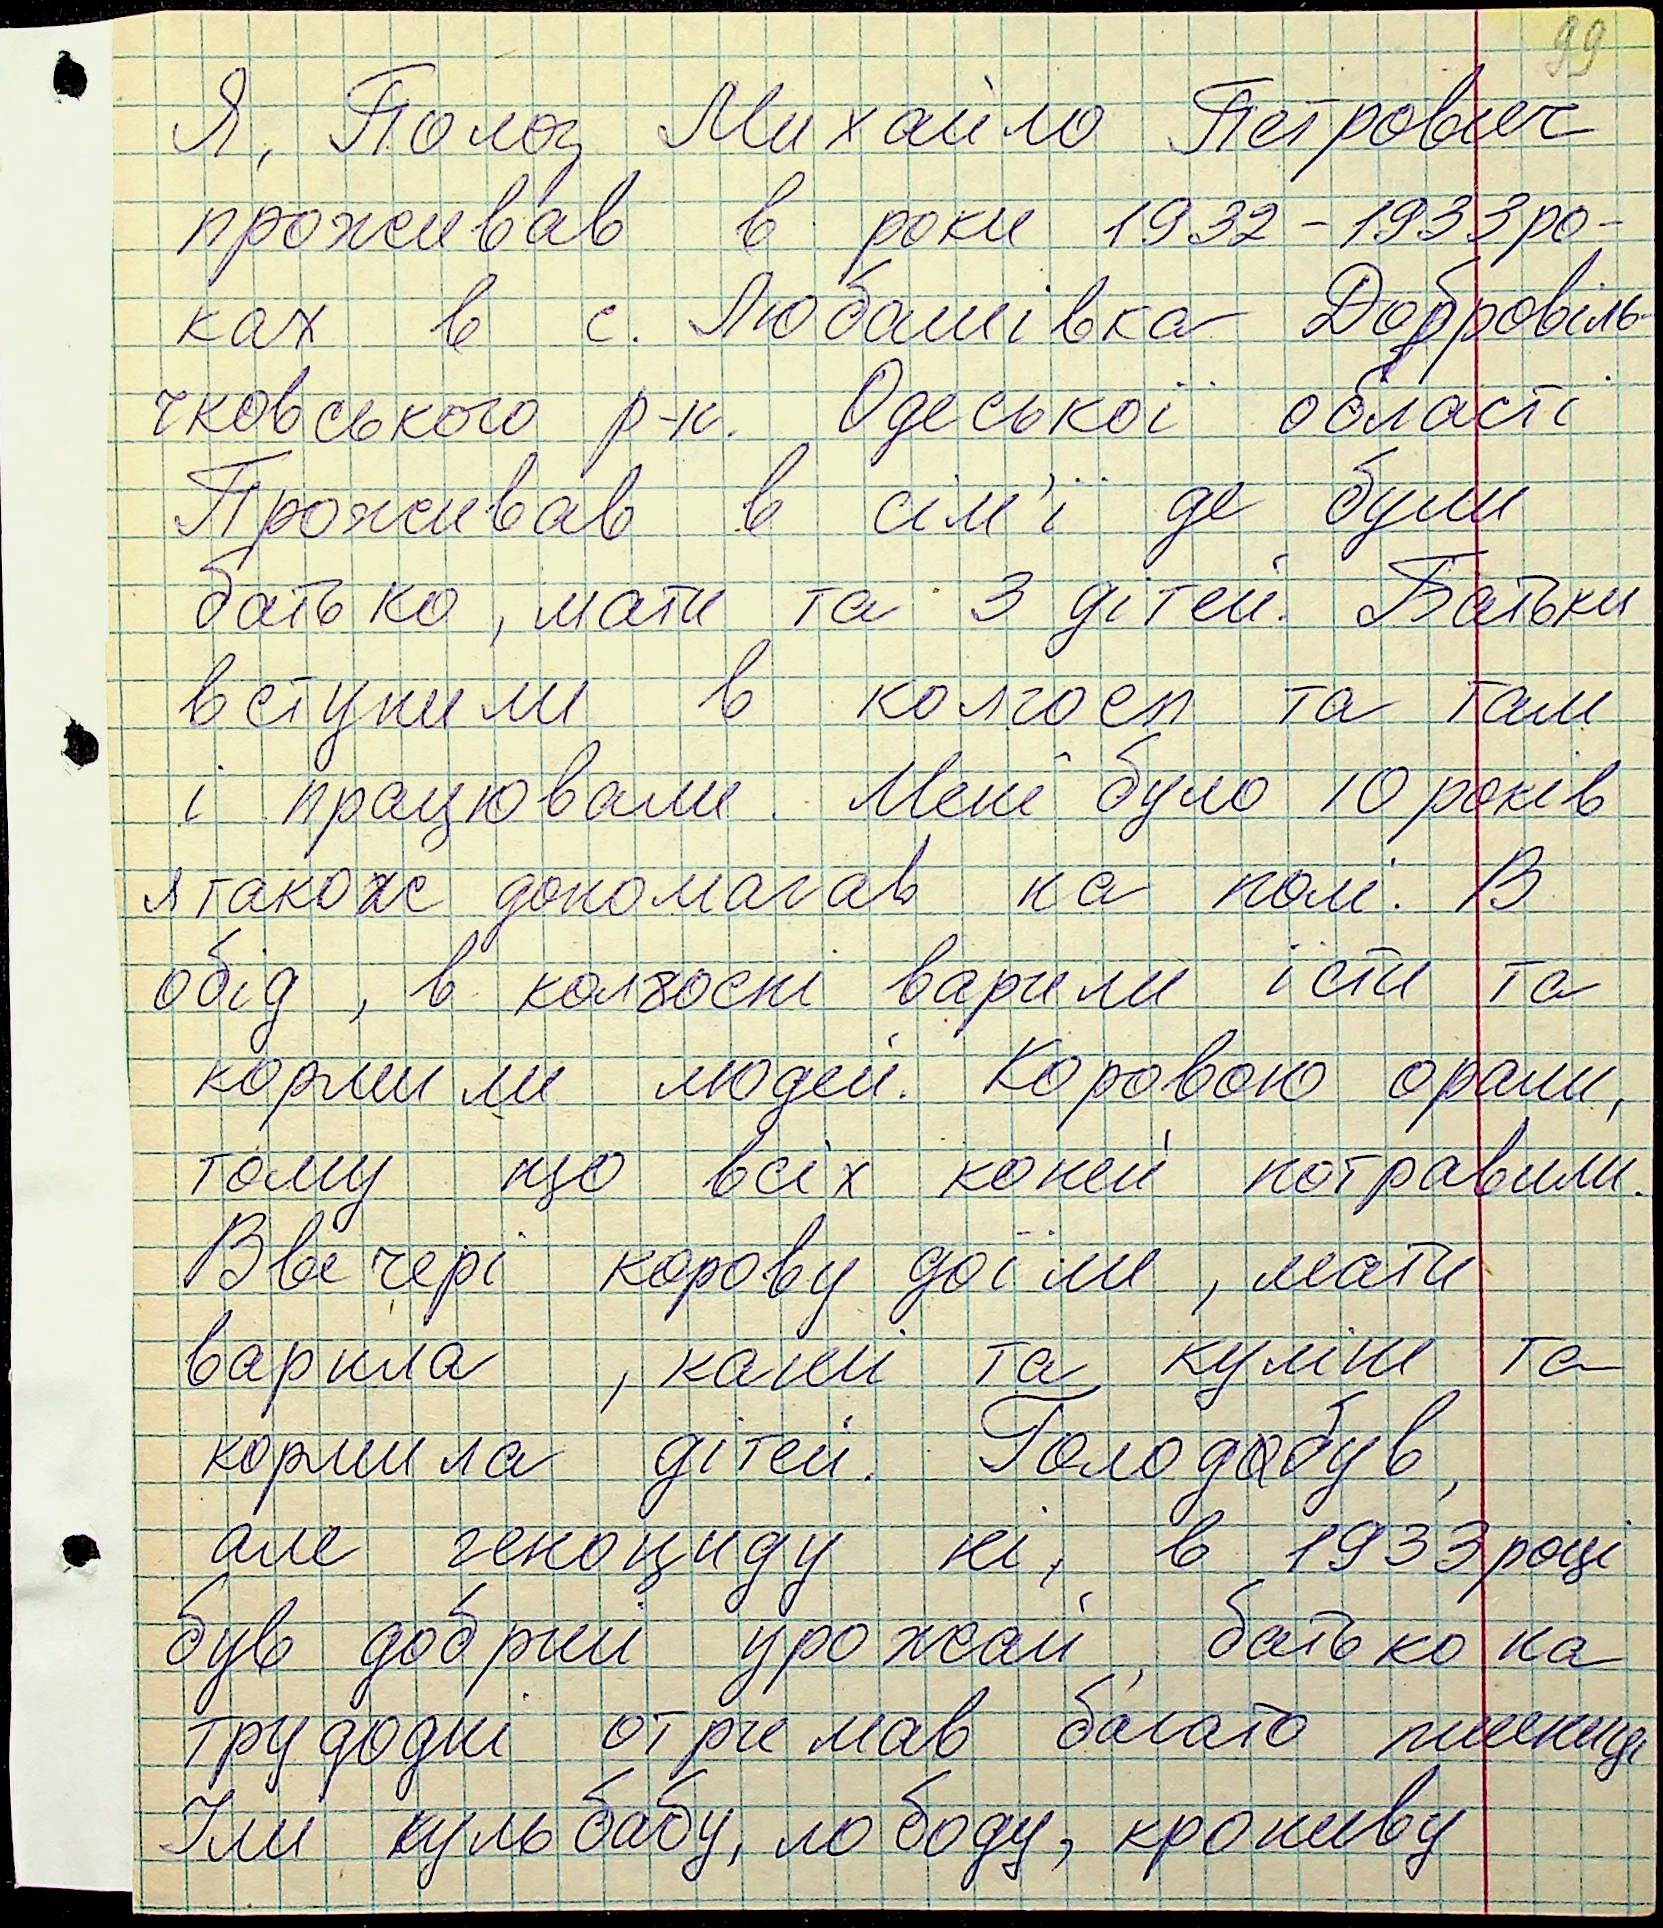 99
Я, Полоз Михайло Петрович
проживав в роки 1932-1933 ро-
ках в с. Любашівка Добровіль-
чковського р-н. Одеської області
Проживав в сім'ї де були
батько, мати та 3 дітей. Батьки
вступили в колгосп та там
і працювали. Мені було 10 років
я також допомагав на полі. В
обід, в колгоспі варили їсти та
кормили людей. Коровою орали,
тому що всіх коней потравили.
Ввечері корову доїли, мати
варила, каші та куліш та
кормила дітей. Голод був,
але геноциду ні, в 1933 році
був добрий урожай, батько на
трудодні отримав багато пшениці
Їли кульбабу, лободу, кропиву